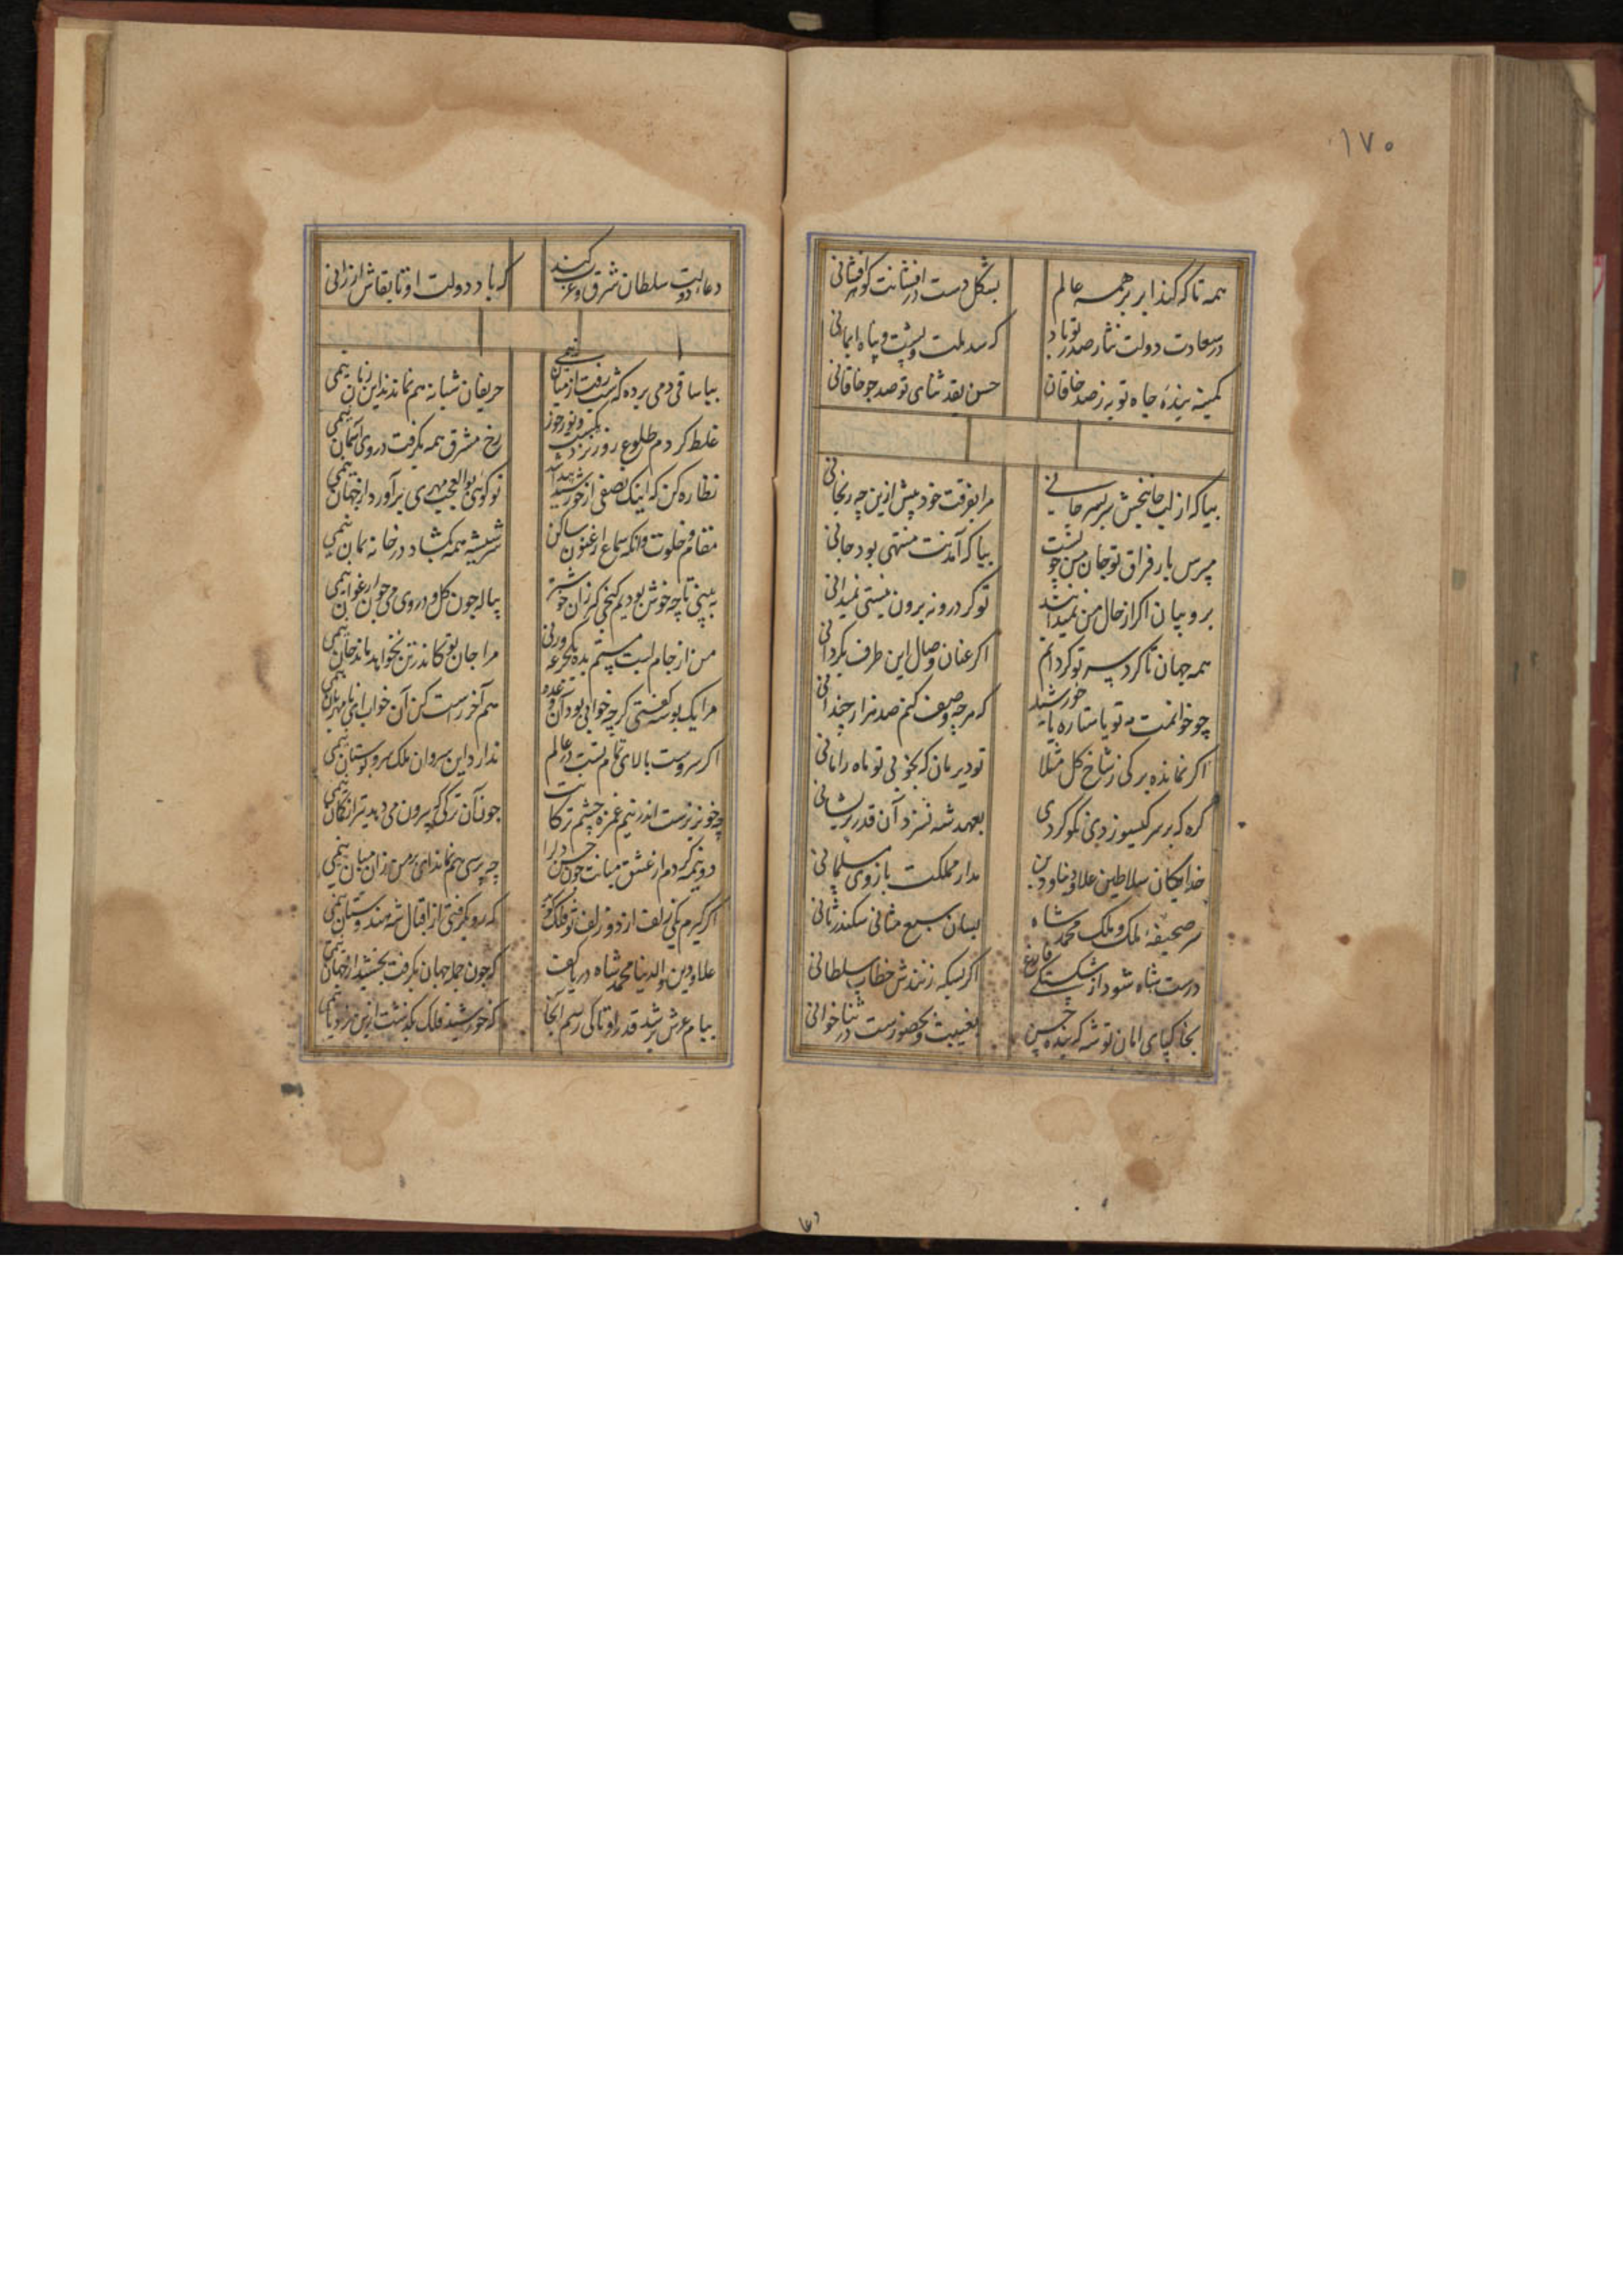 ۱۷۰
همه تا که کند ابر بر همه عالم بشکل دست درافشانت گوهرافشانی
در سعادت دولت نثار صدر تو باد که سد ملت و پشت و پناه ایمانی
کمینه بنده جاه تو به ز صد خاقان حسن بقد ثنای تو صد جو خاقانی
بیا که از لب جانبخش سربسر جانی مرا بفرقت خود بیش ازین چه رنجانی
مپرس بار فراق تو جان من چونست بیا که آمدنت منتهی بود جانی
برو بیان اکر از حال من توکر درونه برون نیستی نمیدانی
همه جهان تا کرد سر تو کردانم اکر عنان وصال این طرف بکردانی
چو خوانمت مه تو یا ستاره یا خورشید که هرچه وصف کنم صد هزار چندانی
اکر نمانده برکی ز شاخ کل مثلا تو دیر مان که بخوبی تو ماه را مانی
کره که بر سر کیسو زدی نکو کردی بعهد شه نسزد آن قدر پریشانی
خدایکان سلاطین علاء دنیا و دین مدار مملکت بازوی مسلمانی
سر صحیفه ملک و ملک محمد شاه بسان سبع مثانی سکندر ثانی
درست شاه شود از شکستکی فارغ اکر بسکه زنندش خطاب سلطانی
بخاکپای امان تو شه که بنده حسن بغیبت و بحضورست در ثناخوانی
دعا
دعاء دولت سلطان شرق و غرب کنند که باد دولت او تا بقاش ارزانی
بیا ساقی دمی بر ده که شب رفت از میان نیمی حریفان شبانه هم نماندند این زمان نیمی
غلط کردم طلوع روز نزدیکست رخ مشرق همه بکرفت در روی آسمان نیمی
نظاره کن که اینک نصفی از خورشید تو کوئی بوالعجب مهری برآورد از جهان نیمی
مقام خلوت و آنکه سماع ارغنون ساکن سر شیشه همه بکشاد در خانه بمان نیمی
به بینی تا چه خوش بودیم کنجی کز آن خوشتر پیاله چون کل و در وی می چون ارغوان نیمی
من از جام لبت مستم بده یک جرعه ورنی مرا جان بو کاندر تن نخواهد ماند جان نیمی
مرا یک بوسه کفتی کرچه خوابی بود آن وعده هم آخر راست کن آن خواب ای نامهربان نیمی
اکر سروست بالای تمام تست در عالم ندارد این سروان ملک سرو بوستان نیمی
چه خونریزست اندر نیم غمزه چشم ترکانت چون آن ترکی که بیرون می دهد تیر از کمان نیمی
دو نیمه کردم از عشق میانت چون حسن دل را چه پرسی هم نماند ای بر من زان میان نیمی
اکر کیرم یکی زلف از دو زلف تو فلک کوید که رو بکرفتی از اقبال شه هندوستان نیمی
علاء دین و الدنیا محمد شاه دریا کف که چون جمله جهان بکرفت بخشید از جهان نیمی
ببام عرش برشد قدر او تا کی رسم آنجا که خورشید فلک بکذشت ازین نردبان نیمی